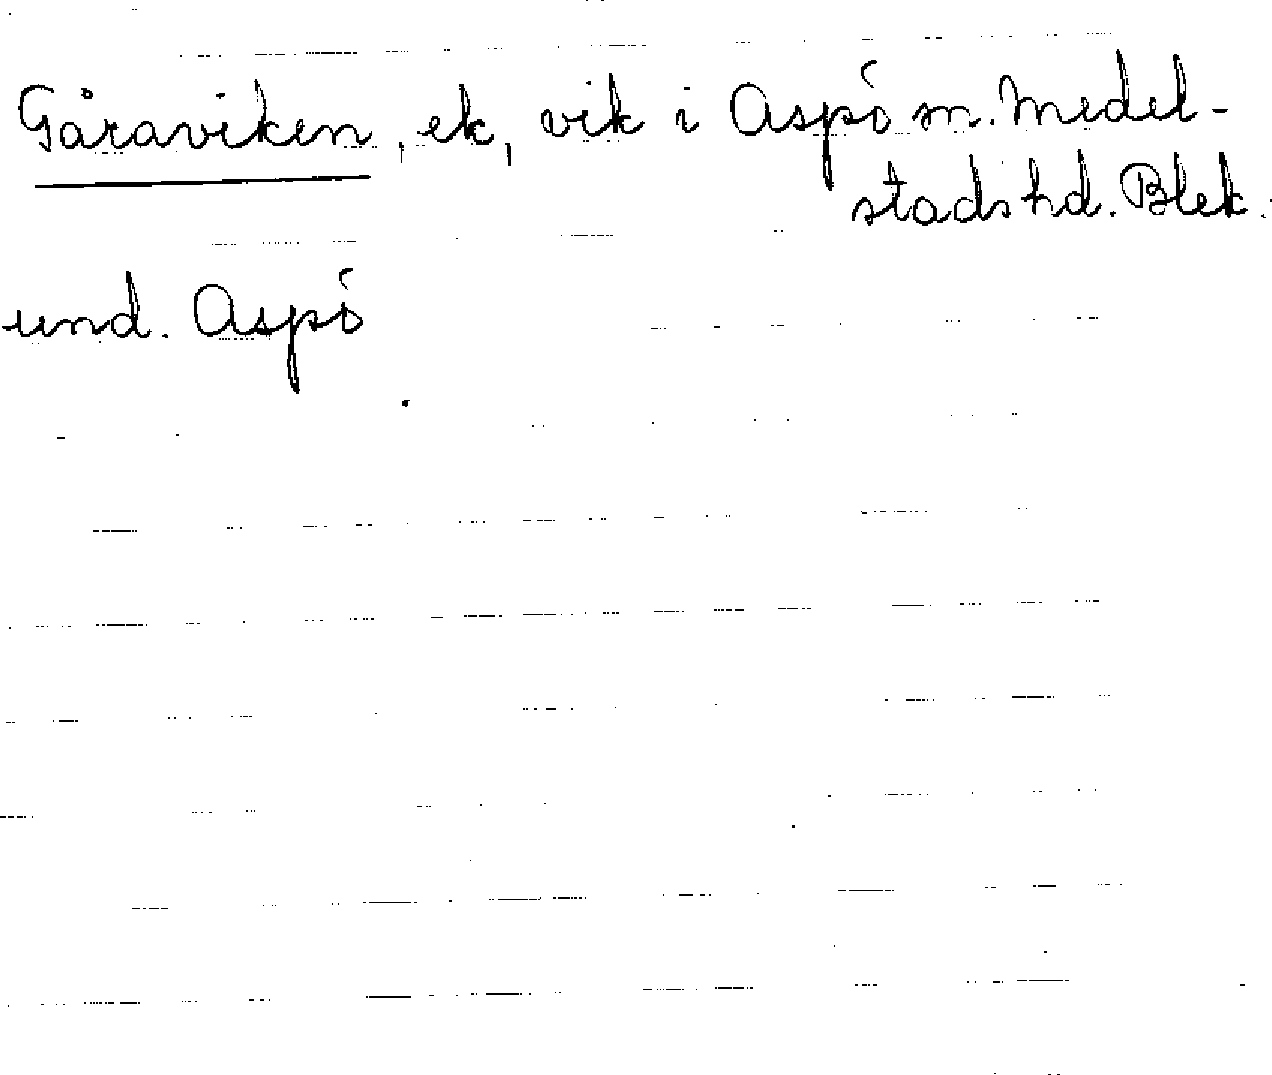 Gåraviken, ek, vik i Aspö sn. Medel-
stads hd. Blek.
und. Aspö